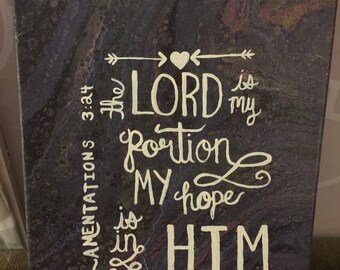 the LORD is my
portion
MY hope
is in HIM
LAMENTATIONS 3:24